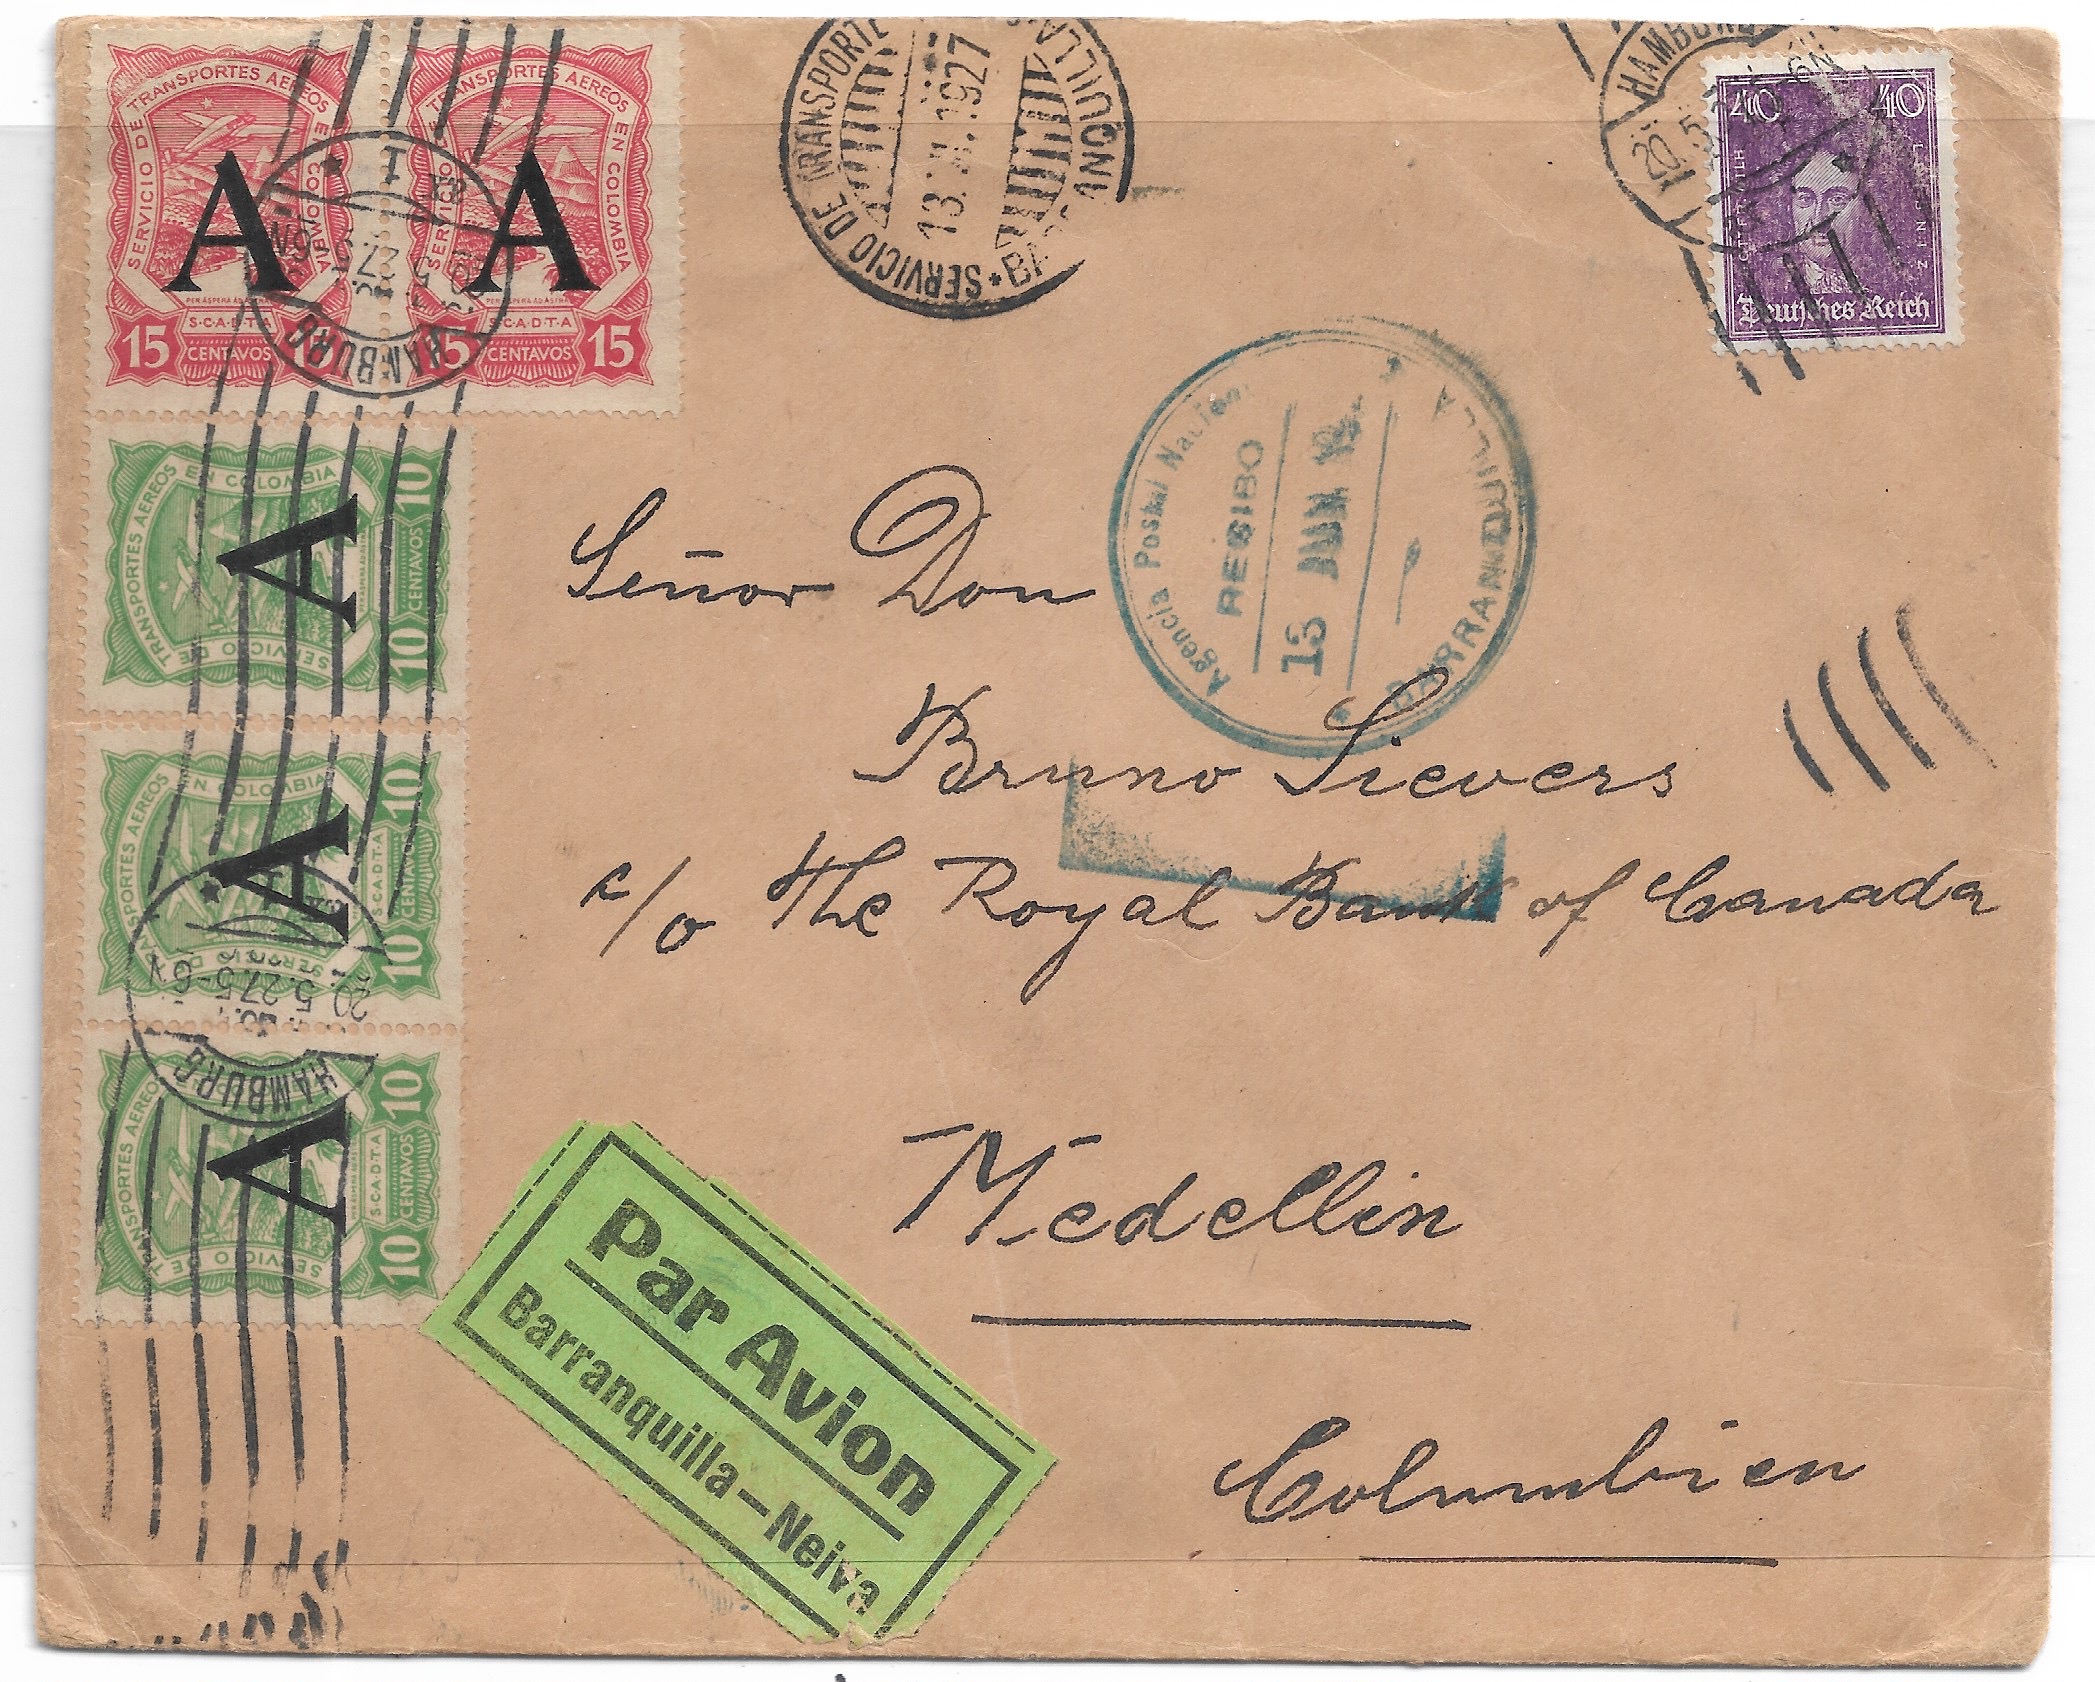 SERVICIO DE TRANSPORTES AEREOS EN COLOMBIA
A
PER ASPERA AD ASTRA
S·C·A·D·T·A
15 CENTAVOS 15
SERVICIO DE TRANSPORTES AEREOS EN COLOMBIA
A
PER ASPERA AD ASTRA
S·C·A·D·T·A
15 CENTAVOS 15
HAMBURG
SERVICIO DE TRANSPORTE
13.
1927
HAMBURG
40 40
Deutsches Reich
SERVICIO DE TRANSPORTES AEREOS EN COLOMBIA
A
10 CENTAVOS 10
SERVICIO DE TRANSPORTES AEREOS EN COLOMBIA
A
S·C·A·D·T·A
10 CENTAVOS 10
HAMBURG
20.
5.27.5-6N
TRANSPORTES AEREOS
A
SERVICIO
S·C·A·D·T·A
10 CENTAVOS 10
Agencia Postal
RECIBO
13 JUN
BARRANQUILLA
Señor Don
Bruno Sievers
c/o The Royal Bank of Canada
Medellin
Columbien
Par Avion
Barranquilla—Neiva